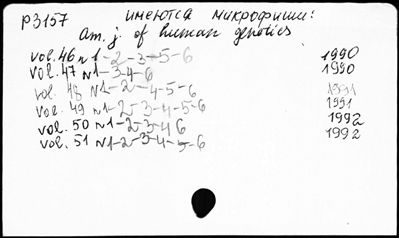 P3157 имеются микрофиши:
Am. j. of human genetics
vol. 46 N1-2-3-5-6 1990
vol. 47 N1-3-4-6 1990
vol. 48 N1-2-4-5-6 1991
vol. 49 N1-2-3-4-5-6 1991
vol. 50 N1-2-3-4 6 1992
vol. 51 N1-2-3-4-5-6 1992